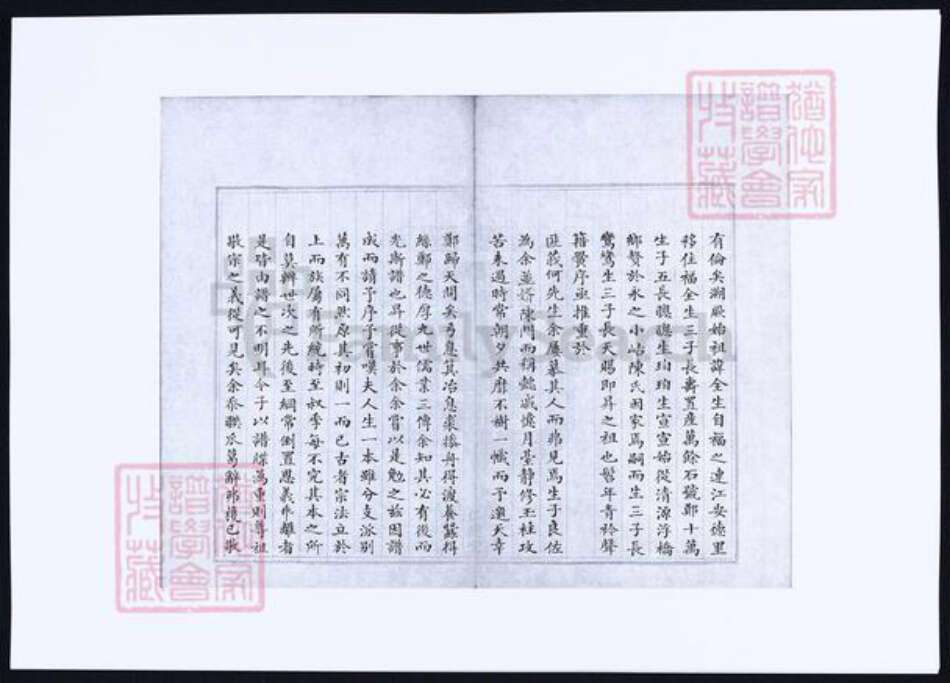 有倫矣溯厥始祖諱全生自福之連江安德里
移住福全生三子長壽置產萬餘石號鄭十萬
生子五長聰聰生珀珀生宣宣始從清源浮橋
鄉贅於永之小岵陳氏因家焉嗣而生三子長
鸞鸞生三子長天賜即昇之祖也髫年青衿聲
籍黌序亟推重於
匪莪何先生余屢慕其人而弗見焉生于良佐
為余並婿陳門而稱懿戚憶月臺靜修玉柱攻
苦來過時常朝夕共磨不樹一幟而予邀天幸
鄭歸天間矣乃息箕冶息裘接舟得渡養蠶得
絲鄭之德厚九世儒業三傳余知其必有後而
光斯譜也昇從事於余余嘗以是勉之茲因譜
成而請予序予嘗嘆夫人生一本雖分支派別
萬有不同然原其初則一而已古者宗法立於
上而族屬有所統時至叔季每不究其本之所
自莫辨世次之先後至綱常倒置恩義乖離者
是皆由譜之不明耳今子以譜牒為重則尊祖
敬宗之義從可見矣余忝聯瓜葛辭弗獲已敬
猶他家
譜學會
收藏
猶他家
譜學會
收藏
FamilySearch